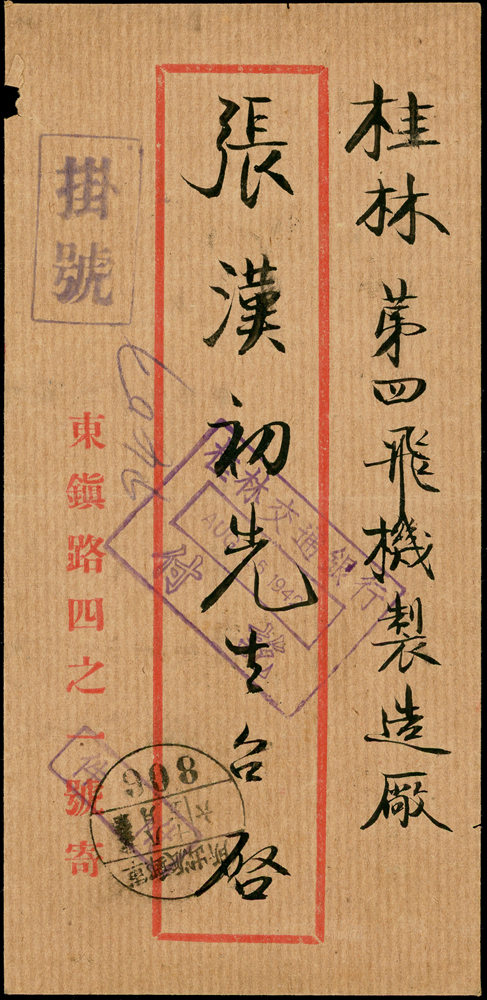 桂林第四飛機製造厰
張漢初先生台啓
掛號
東鎮路四之一號寄
桂林交通銀行
AUG 6 194
付訖
908